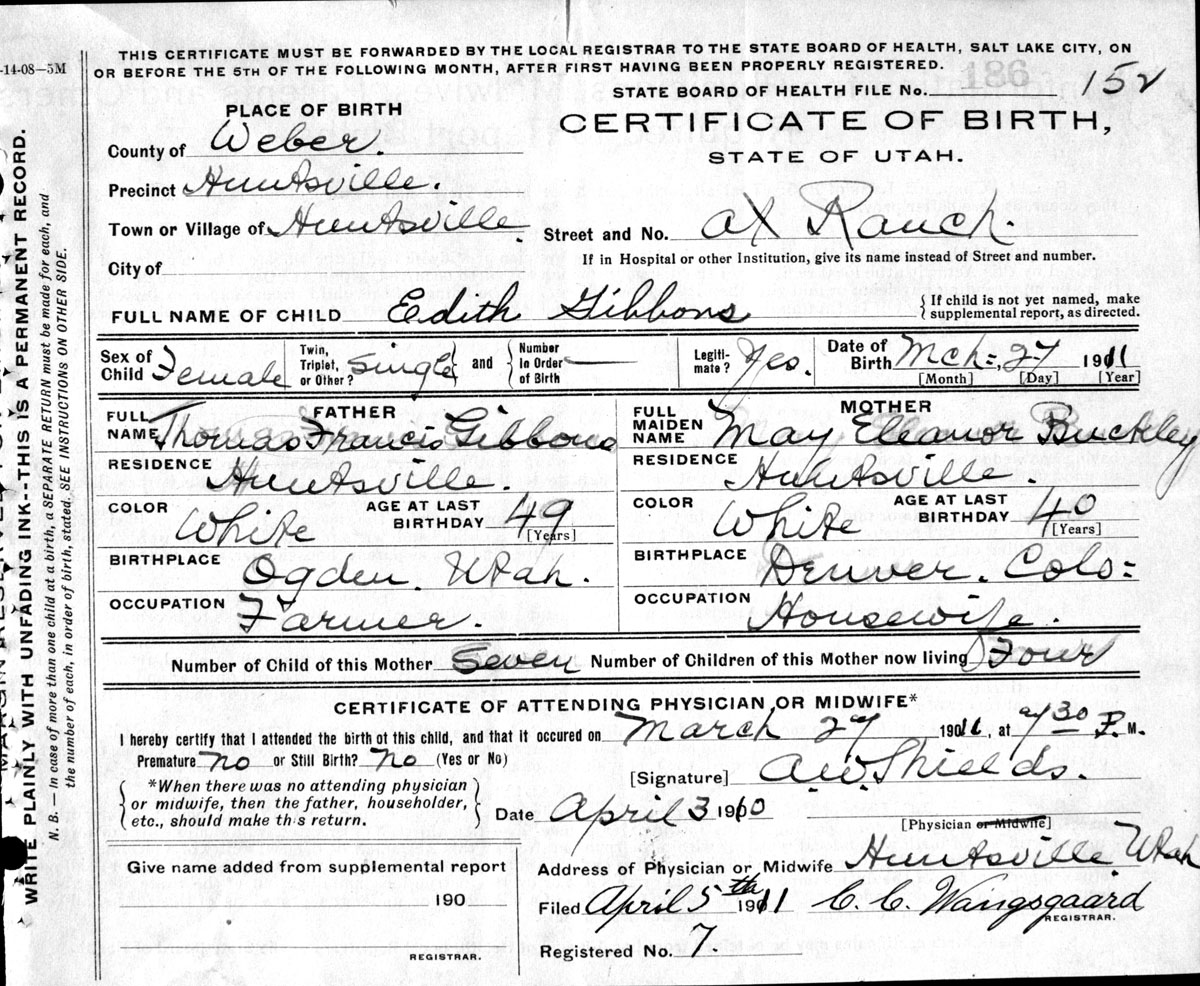 -14-08-5M
THIS CERTIFICATE MUST BE FORWARDED BY THE LOCAL REGISTRAR TO THE STATE BOARD OF HEALTH, SALT LAKE CITY, ON
OR BEFORE THE 5TH OF THE FOLLOWING MONTH, AFTER FIRST HAVING BEEN PROPERLY REGISTERED.
STATE BOARD OF HEALTH FILE No. 186 152
PLACE OF BIRTH
CERTIFICATE OF BIRTH,
STATE OF UTAH.
County of Weber.
Precinct Huntsville.
Town or Village of Huntsville.
Street and No. Ranch.
If in Hospital or other Institution, give its name instead of Street and number.
City of
FULL NAME OF CHILD Edith Gibbons
{ If child is not yet named, make
supplemental report, as directed.
Sex of Child Female
Twin, Triplet, or Other? Single } and { Number In Order of Birth
Legitimate? Yes.
Date of Birth Mch=, 27 1911
[Month] [Day] [Year]
FATHER
FULL NAME Thomas Francis Gibbons
RESIDENCE Huntsville
COLOR White AGE AT LAST BIRTHDAY 49 [Years]
BIRTHPLACE Ogden. Utah.
OCCUPATION Farmer.
MOTHER
FULL MAIDEN NAME May Eleanor Buckley
RESIDENCE Huntsville.
COLOR White AGE AT LAST BIRTHDAY 40 [Years]
BIRTHPLACE Denver. Colo=
OCCUPATION Housewife.
Number of Child of this Mother Seven Number of Children of this Mother now living Four
CERTIFICATE OF ATTENDING PHYSICIAN OR MIDWIFE*
I hereby certify that I attended the birth of this child, and that it occured on March 27 1911, at 30 P. M.
Premature? No or Still Birth? No (Yes or No)
[Signature] A.W. Shields.
{ *When there was no attending physician
or midwife, then the father, householder,
etc., should make this return. }
Date April 3 1910
[Physician or Midwife]
Give name added from supplemental report
190
REGISTRAR.
Address of Physician or Midwife Huntsville Utah
Filed April 5th 1911 C. C. Wangsgaard
REGISTRAR.
Registered No. 7.
WRITE PLAINLY WITH UNFADING INK--THIS IS A PERMANENT RECORD.
N. B. — In case of more than one child at a birth, a SEPARATE RETURN must be made for each, and
the number of each, in order of birth, stated. SEE INSTRUCTIONS ON OTHER SIDE.